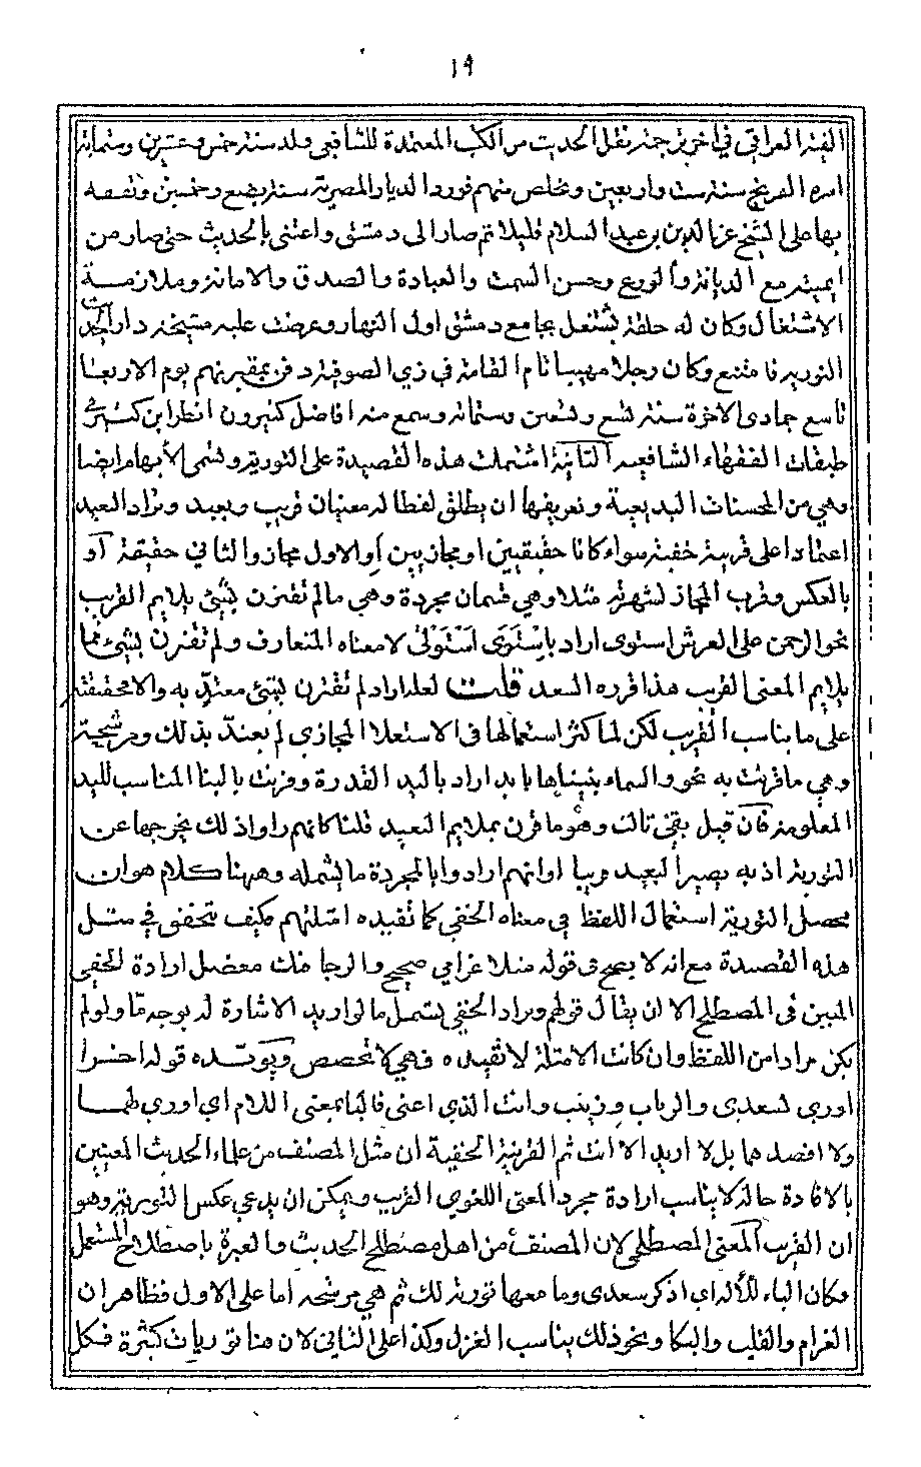 ١٩
الفية العراقي في اخر ترجمته نقل الحديث من الكتب المعتمدة للشافعي ولد سنة خمس وعشرين وستمائة
اسره الفرنج سنة ست واربعين وتخلص منهم فورد الديار المصرية سنة بضع وخمسين وتفقه
بها على الشيخ عز الدين بن عبد السلام قليلا ثم صار الى دمشق واعتنى بالحديث حتى صار من
ايمته مع الديانة والورع وحسن السمت والعبادة والصدق والامانة وملازمة
الاشتغال وكان له حلقة يشتغل بجامع دمشق اول النهار وعرضت عليه مشيخة دار الحديث
النورية فامتنع وكان رجلا مهيبا تام القامة في زي الصوفية دفن بمقبرتهم يوم الاربعا
تاسع جمادى الاخرة سنة تسع وتسعين وستمائة وسمع منه افاضل كثيرون انظر ابن كثير في
طبقات الفقهاء الشافعيه الثانية اشتملت هذه القصيدة على التورية وتسمى الأبهام ايضا
وهي من المحسنات البديعية وتعريفها ان يطلق لفظ له معنيان قريب وبعيد ويراد البعيد
اعتمادا على قرينة خفية سواء كانا حقيقيين او مجازيين او الاول مجاز والثاني حقيقة او
بالعكس وقرب المجاز لشهرته مثلا وهي قسمان مجردة وهي ما لم تقترن بشئ يلايم القريب
نحو الرحمن على العرش استوى اراد باستوى استولى لا معناه المتعارف ولم تقترن بشئ مما
يلايم المعنى القريب هذا قرره السعد قلت لعله اراد لم تقترن بشئ معتد به والا فحقيقته
على ما يناسب القريب لكن لما كثر استعمالها في الاستعلا المجازي لم يعتد بذلك ومرشحة
وهي ما قرنت به نحو والسماء بنيناها بايد اراد بااليد القدرة وقرنت بالبنا المناسب لليد
المعلومة فان قيل بقي ثالث وهو ما قرن بملايم البعيد قلنا كانهم راوا ذلك يخرجها عن
التورية اذ به يصير البعيد قريبا او انهم ارادوا بالمجردة ما يشمله وههنا كلام هو ان
محصل التورية استعمال اللفظ في معناه الخفي كما تفيده امثلتهم فكيف تتحقق في مثل
هذه القصيدة مع انه لا يصح في قوله مثلا غرامي صحيح والرجا فيك معضل ارادة الخفي
المبين في المصطلح الا ان يقال قولهم ويراد الخفي يشمل ما لو اريد الاشارة له بوجه ما ولو لم
يكن مرادا من اللفظ وان كانت الامثلة لا تفيده فهي لا تخصص ويؤيده قوله اخرا
اوري بسعدى والرباب وزينب وانت الذي اعني فالبا بمعنى اللام اي اوري لهما
ولا اقصدهما بل لا اريد الا انت ثم القرينة الخفية ان مثل المصنف من علماء الحديث المعينين
بالافادة حاله لا يناسب ارادة مجرد المعنى اللغوي القريب ويمكن ان يدعى عكس التورية وهو
ان القريب المعنى المصطلحي لان المصنف من اهل مصطلح الحديث والعبرة باصطلاح المستعمل
فكان الباء للآلة اي اذكر سعدى وما معها تورية لك ثم هي مرشحه اما على الاول فظاهر ان
الغرام والقلب والبكا ونحو ذلك يناسب الغزل وكذا على الثاني لان هنا توريات كثيرة فكل